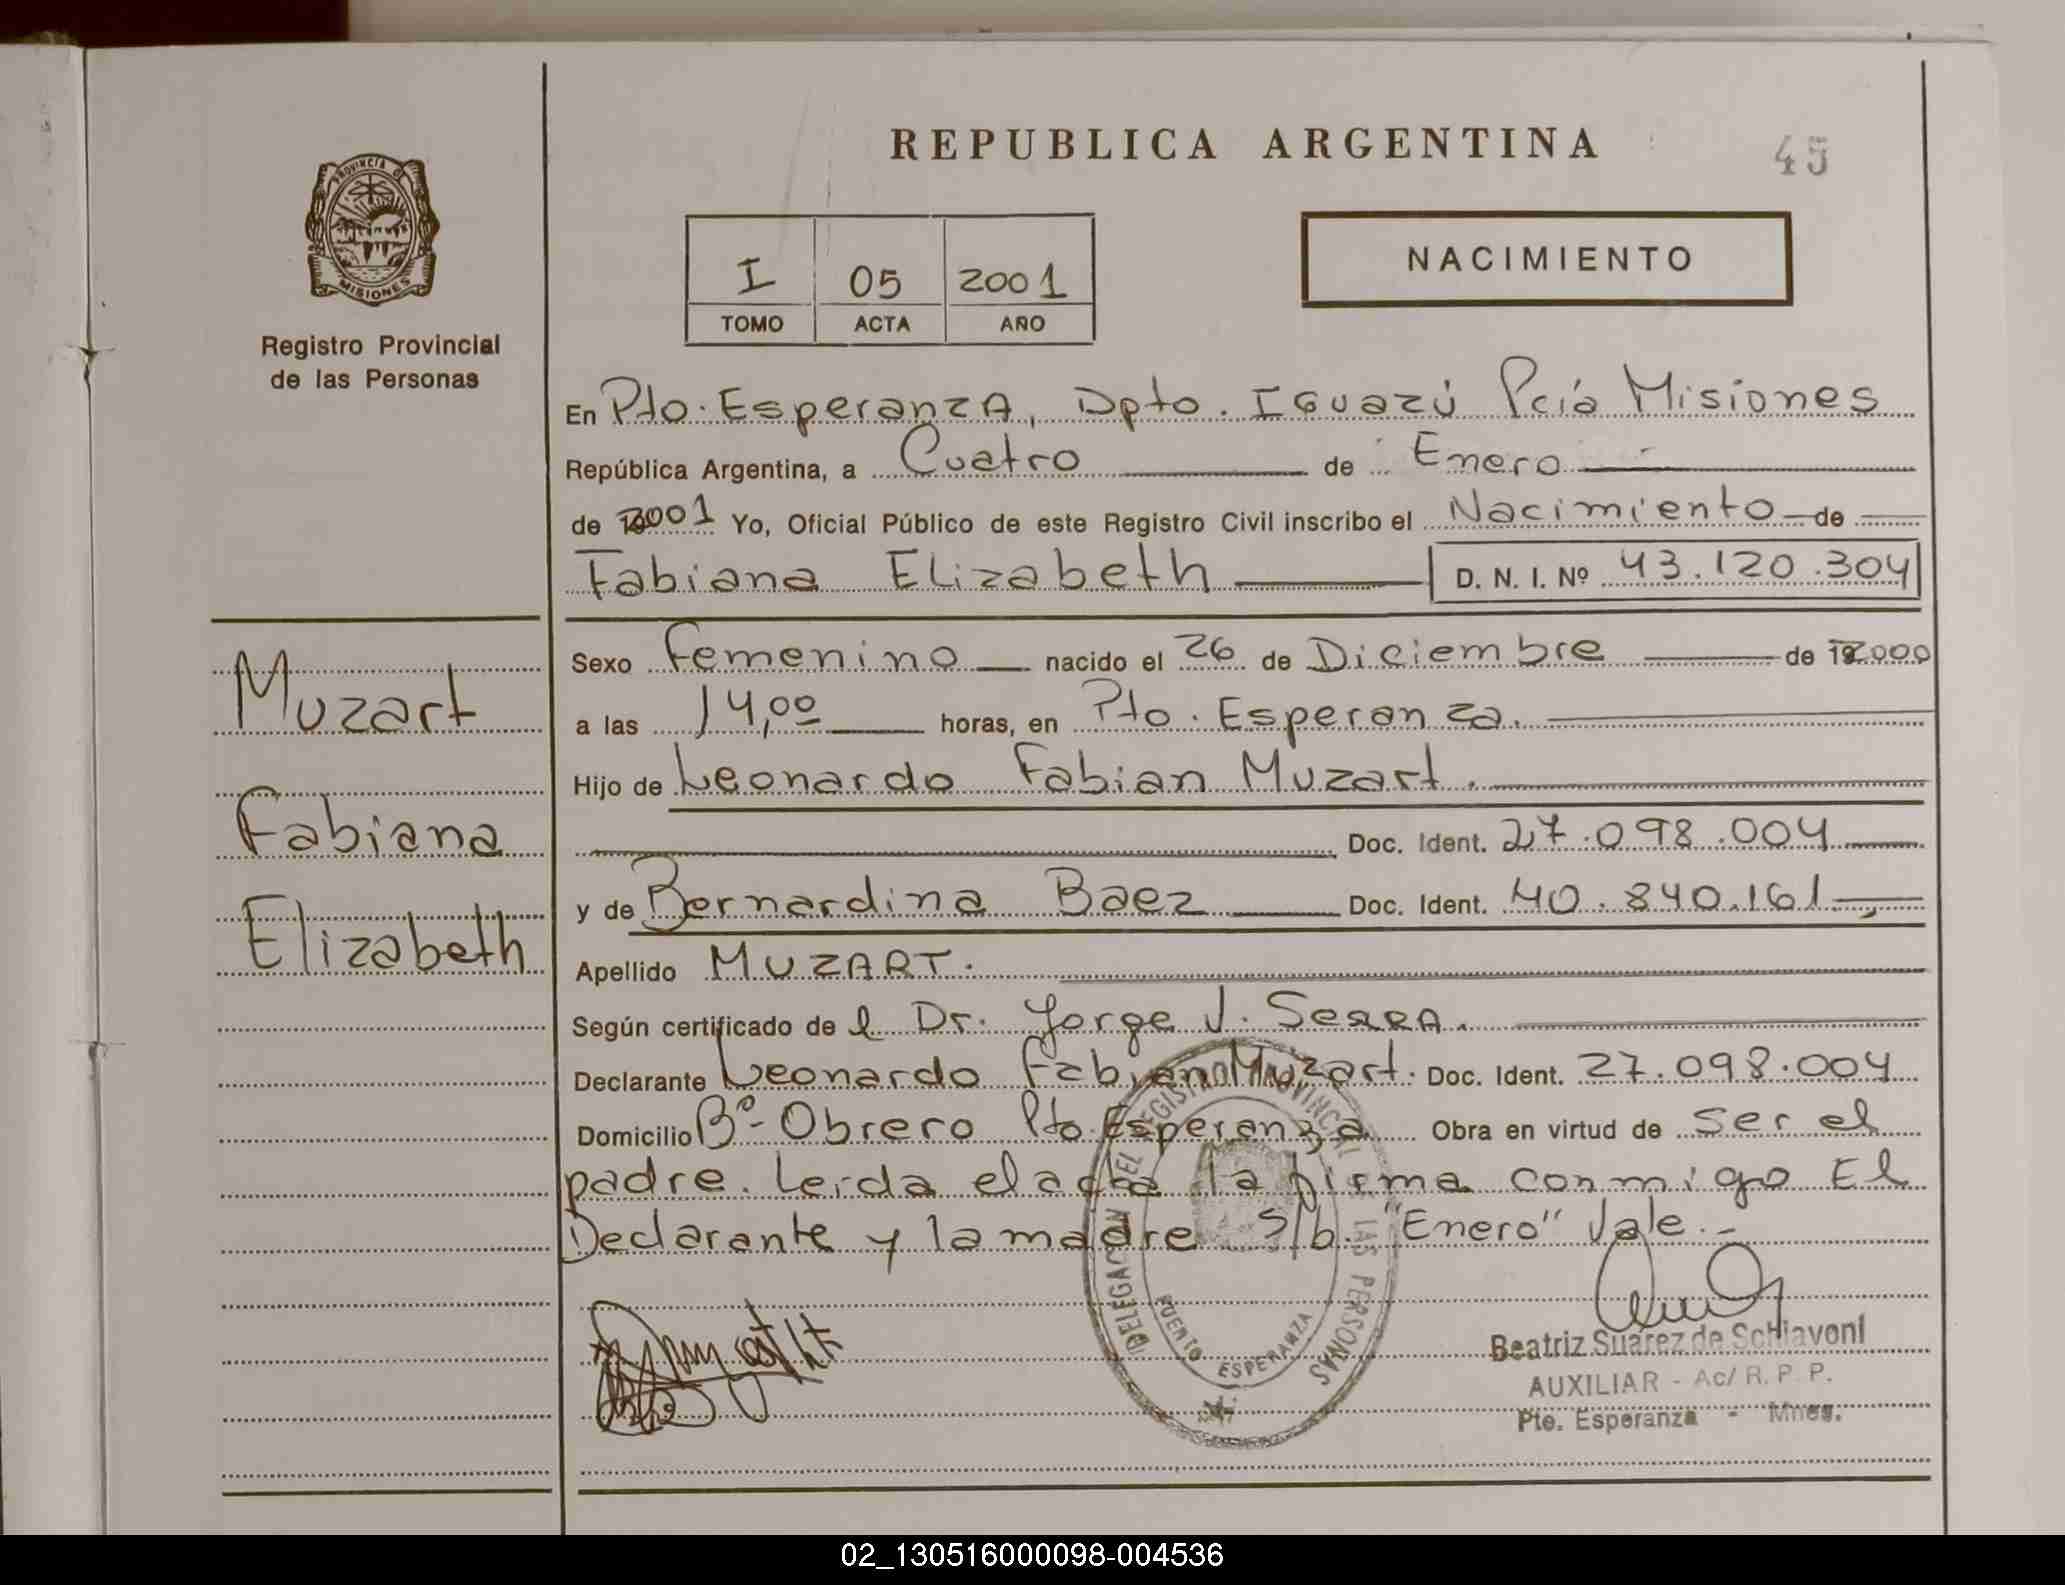 REPUBLICA ARGENTINA
45
PROVINCIA D
MISIONES
Registro Provincial
de las Personas
I 05 2001
TOMO ACTA AÑO
NACIMIENTO
En Pto. Esperanza, Dpto. Iguazú Pcía Misiones
República Argentina, a Cuatro de Enero
de 2001 Yo, Oficial Público de este Registro Civil inscribo el Nacimiento de
Fabiana Elizabeth D. N. I. Nº 43.120.304
Muzart
Fabiana
Elizabeth
Sexo Femenino nacido el 26 de Diciembre de 2000
a las 14,00 horas, en Pto. Esperanza.
Hijo de Leonardo Fabian Muzart.
Doc. Ident. 27.098.004
y de Bernardina Baez Doc. Ident. 40.840.161
Apellido MUZART.
Según certificado de l Dr. Jorge J. Serra.
Declarante Leonardo Fabian Muzart. Doc. Ident. 27.098.004
Domicilio Bº- Obrero Pto. Esperanza Obra en virtud de ser el
padre. Leida el acta la firma conmigo El
Declarante y la madre S/b. "Enero" Vale.-
DELEGACION DEL REGISTRO PROVINCIAL LAS PERSONAS
PUERTO ESPERANZA
Beatriz Suarez de Schiavoni
AUXILIAR - Ac/ R. P. P.
Pto. Esperanza - Mnes.
02_130516000098-004536